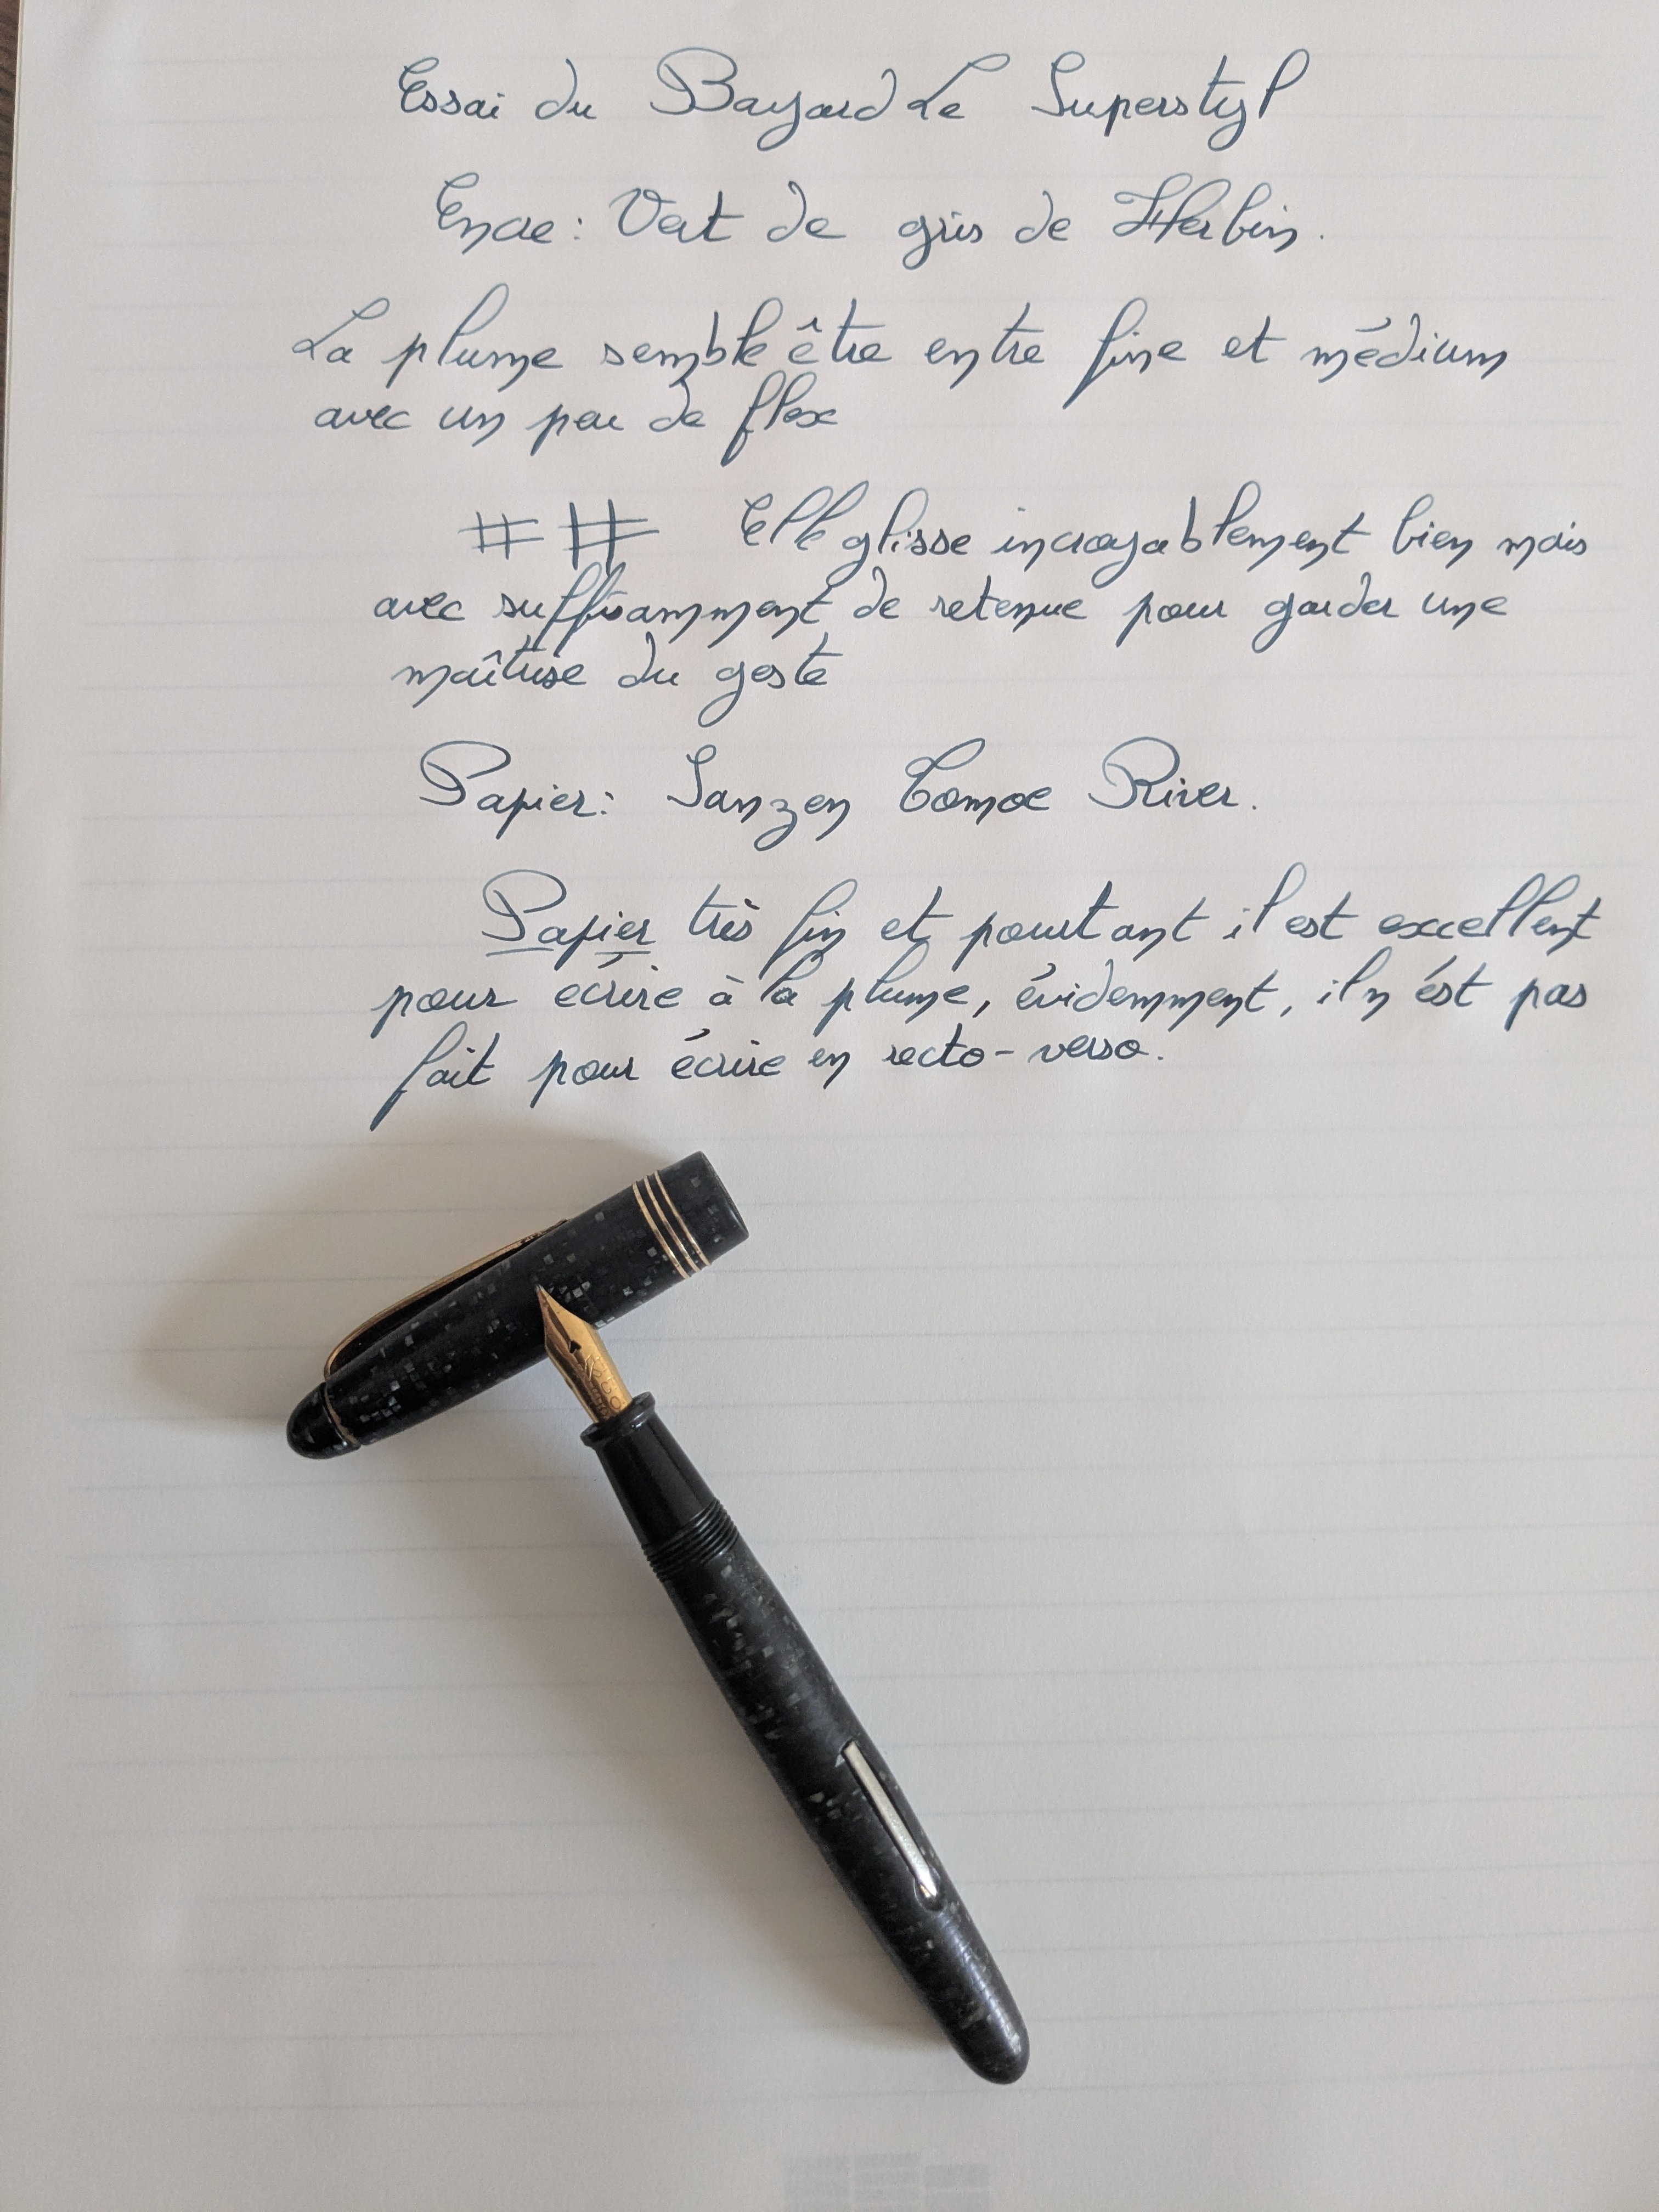 Essai du Bayard Le Superstyl
Encre: Vert de gris de Herbin.
La plume semble être entre fine et médium
avec un peu de flex
## Elle glisse incroyablement bien mais
avec suffisamment de retenue pour garder une
maîtrise du geste
Papier: Sanzen Tomoe River.
Papier très fin et pourtant il est excellent
pour écrire à la plume, évidemment, il n'est pas
fait pour écrire en recto-verso.